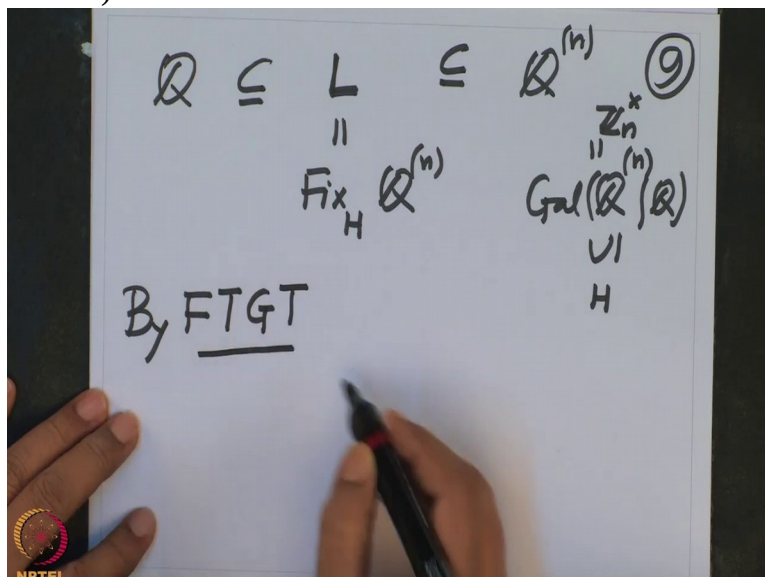 ℚ ⊆ L ⊆ ℚ⁽ⁿ⁾ ⑨
ℤₙˣ
|| ||
Fix_H ℚ⁽ⁿ⁾ Gal(ℚ⁽ⁿ⁾|ℚ)
∪|
H
By FTGT
NPTEL